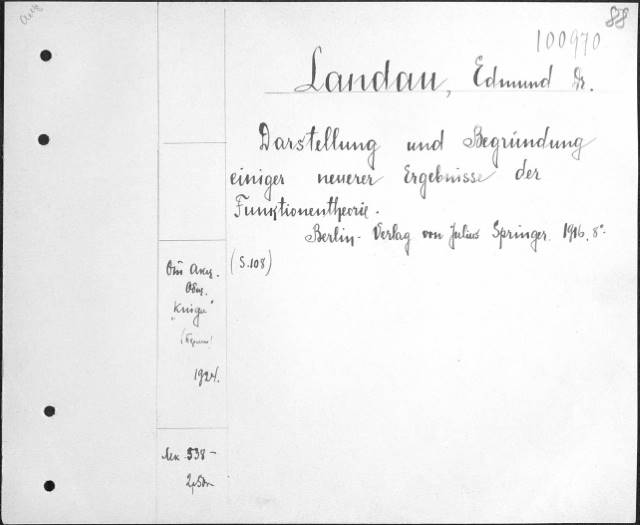 88
100970
Landau, Edmund Dr.
Darstellung und Begründung
einiger neuerer Ergebnisse der
Funktionentheorie.
Berlin. Verlag von Julius Springer. 1916. 8°.
(S.108)
От Акц.
Общ.
"Книга"
1924.
538-